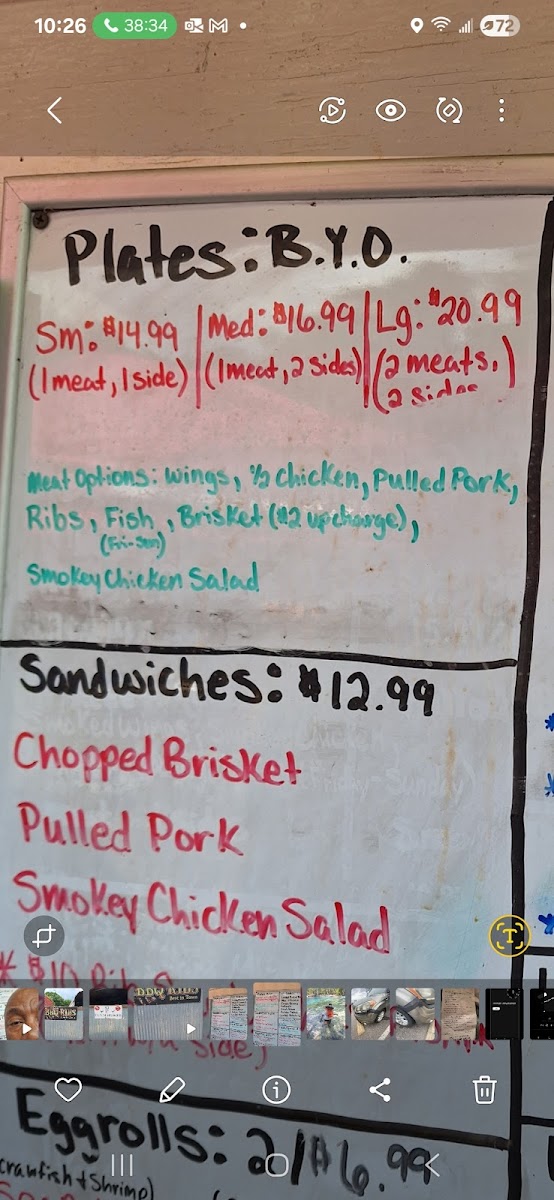 10:26 38:34 72
Plates: B.Y.O.
Sm: $14.99 | Med: $16.99 | Lg: $20.99
(1 meat, 1 side) (1 meat, 2 sides) (2 meats,)
(2 sides
Meat Options: Wings, 1/2 Chicken, Pulled Pork,
Ribs, Fish, Brisket ($2 upcharge),
(Fri-Sun)
Smokey Chicken Salad
Sandwiches: $12.99
Chopped Brisket
Pulled Pork
Smokey Chicken Salad
* $10 Rib
side)
Eggrolls: 2/$6.99
crawfish & Shrimp)